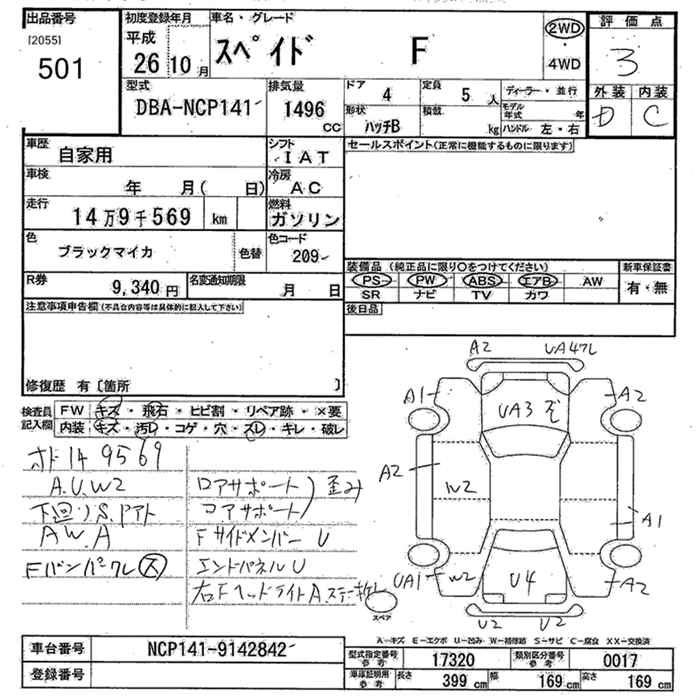 出品番号
[2055]
501
初度登録年月
平成
26 10 月
車名・グレード
スペイド F
2WD
・
4WD
評価点
3
外装 内装
D C
型式
DBA-NCP141
排気量
1496
CC
ドア 4
定員 5 人
形状 ハッチB
積載 kg
ディーラー・並行
モデル年式 年
ハンドル 左・右
車歴 自家用
シフト IAT
車検 年 月( 日)
冷房 AC
走行 14万9千569 km
燃料 ガソリン
色 ブラックマイカ 色替
色コード 209
R券 9,340 円
名変通知期限 月 日
セールスポイント(正常に機能するものに限ります)
装備品 (純正品に限り○をつけてください)
PS PW ABS エアB AW
SR ナビ TV カワ
新車保証書
有・無
後日品
注意事項申告欄(不具合内容等は具体的に記入して下さい)
修復歴 有〔箇所 〕
検査員記入欄
FW キズ・飛石・ヒビ割・リペア跡・×要
内装 キズ・汚レ・コゲ・穴・スレ・キレ・破レ
ホド 149569
A.U.W2
下回りS.
A.W.A
Fバンパークレ
ロアサポート 歪み
コアサポート
FサイドメンバーU
エンドパネルU
右FヘッドライトA.
A2
UA47L
A1
A2
UA3
A2
W2
A1
UA1
W2
U4
A2
U2
U2
スペア
A-キズ E-エクボ U-凹み W-補修跡 S-サビ C-腐食 XX-交換済
車台番号 NCP141-9142842
登録番号
型式指定番号 参考 17320
類別区分番号 参考 0017
車庫証明用 参考
長さ 399 cm
幅 169 cm
高さ 169 cm